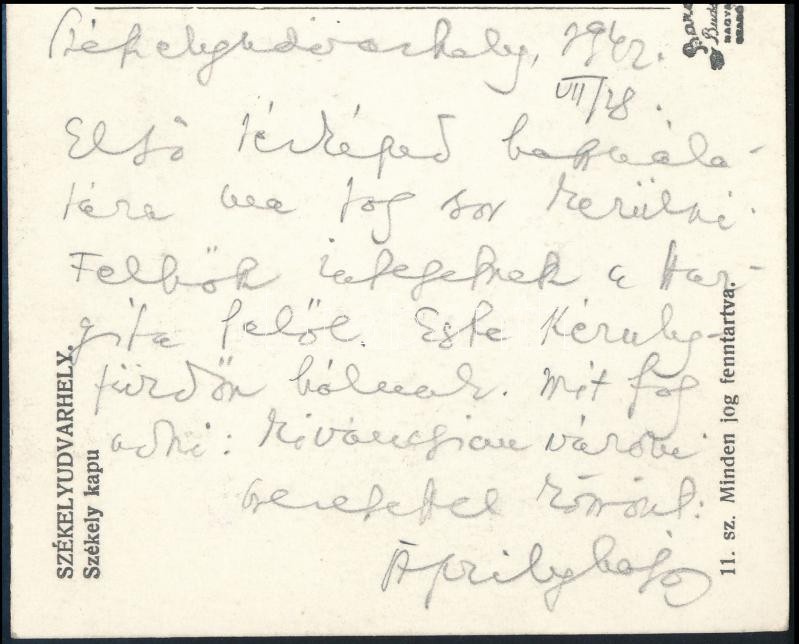 Székelyudvarhely, 1942.
VII/28.
Első térképed használa-
tára ma fog sor kerülni.
Felhők integetnek a Har-
gita felől. Este Kéruly-
fürdőn hálunk. Mit fog
adni: kíváncsian várom.
szeretettel köszönt:
Áprilylajos
SZÉKELYUDVARHELY.
Székely kapu
11. sz. Minden jog fenntartva.